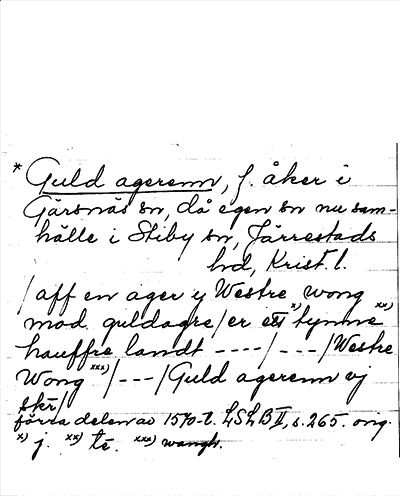 * Guld agerenn, f. åker i
Gärsnäs sn, då egen sn nu sam-
hälle i Stiby sn, Järrestads
hd, Krist. l.
/aff en ager y Westre wong
mod guldagre/er ett x) tynme xx)
hauffre landt ----/---/Westre
Wong xxx)/---/Guld agerenn vj
skr/
förra delen av 1570-t. LSLB II, s. 265. orig.
x) j. xx) te. xxx) wangh.